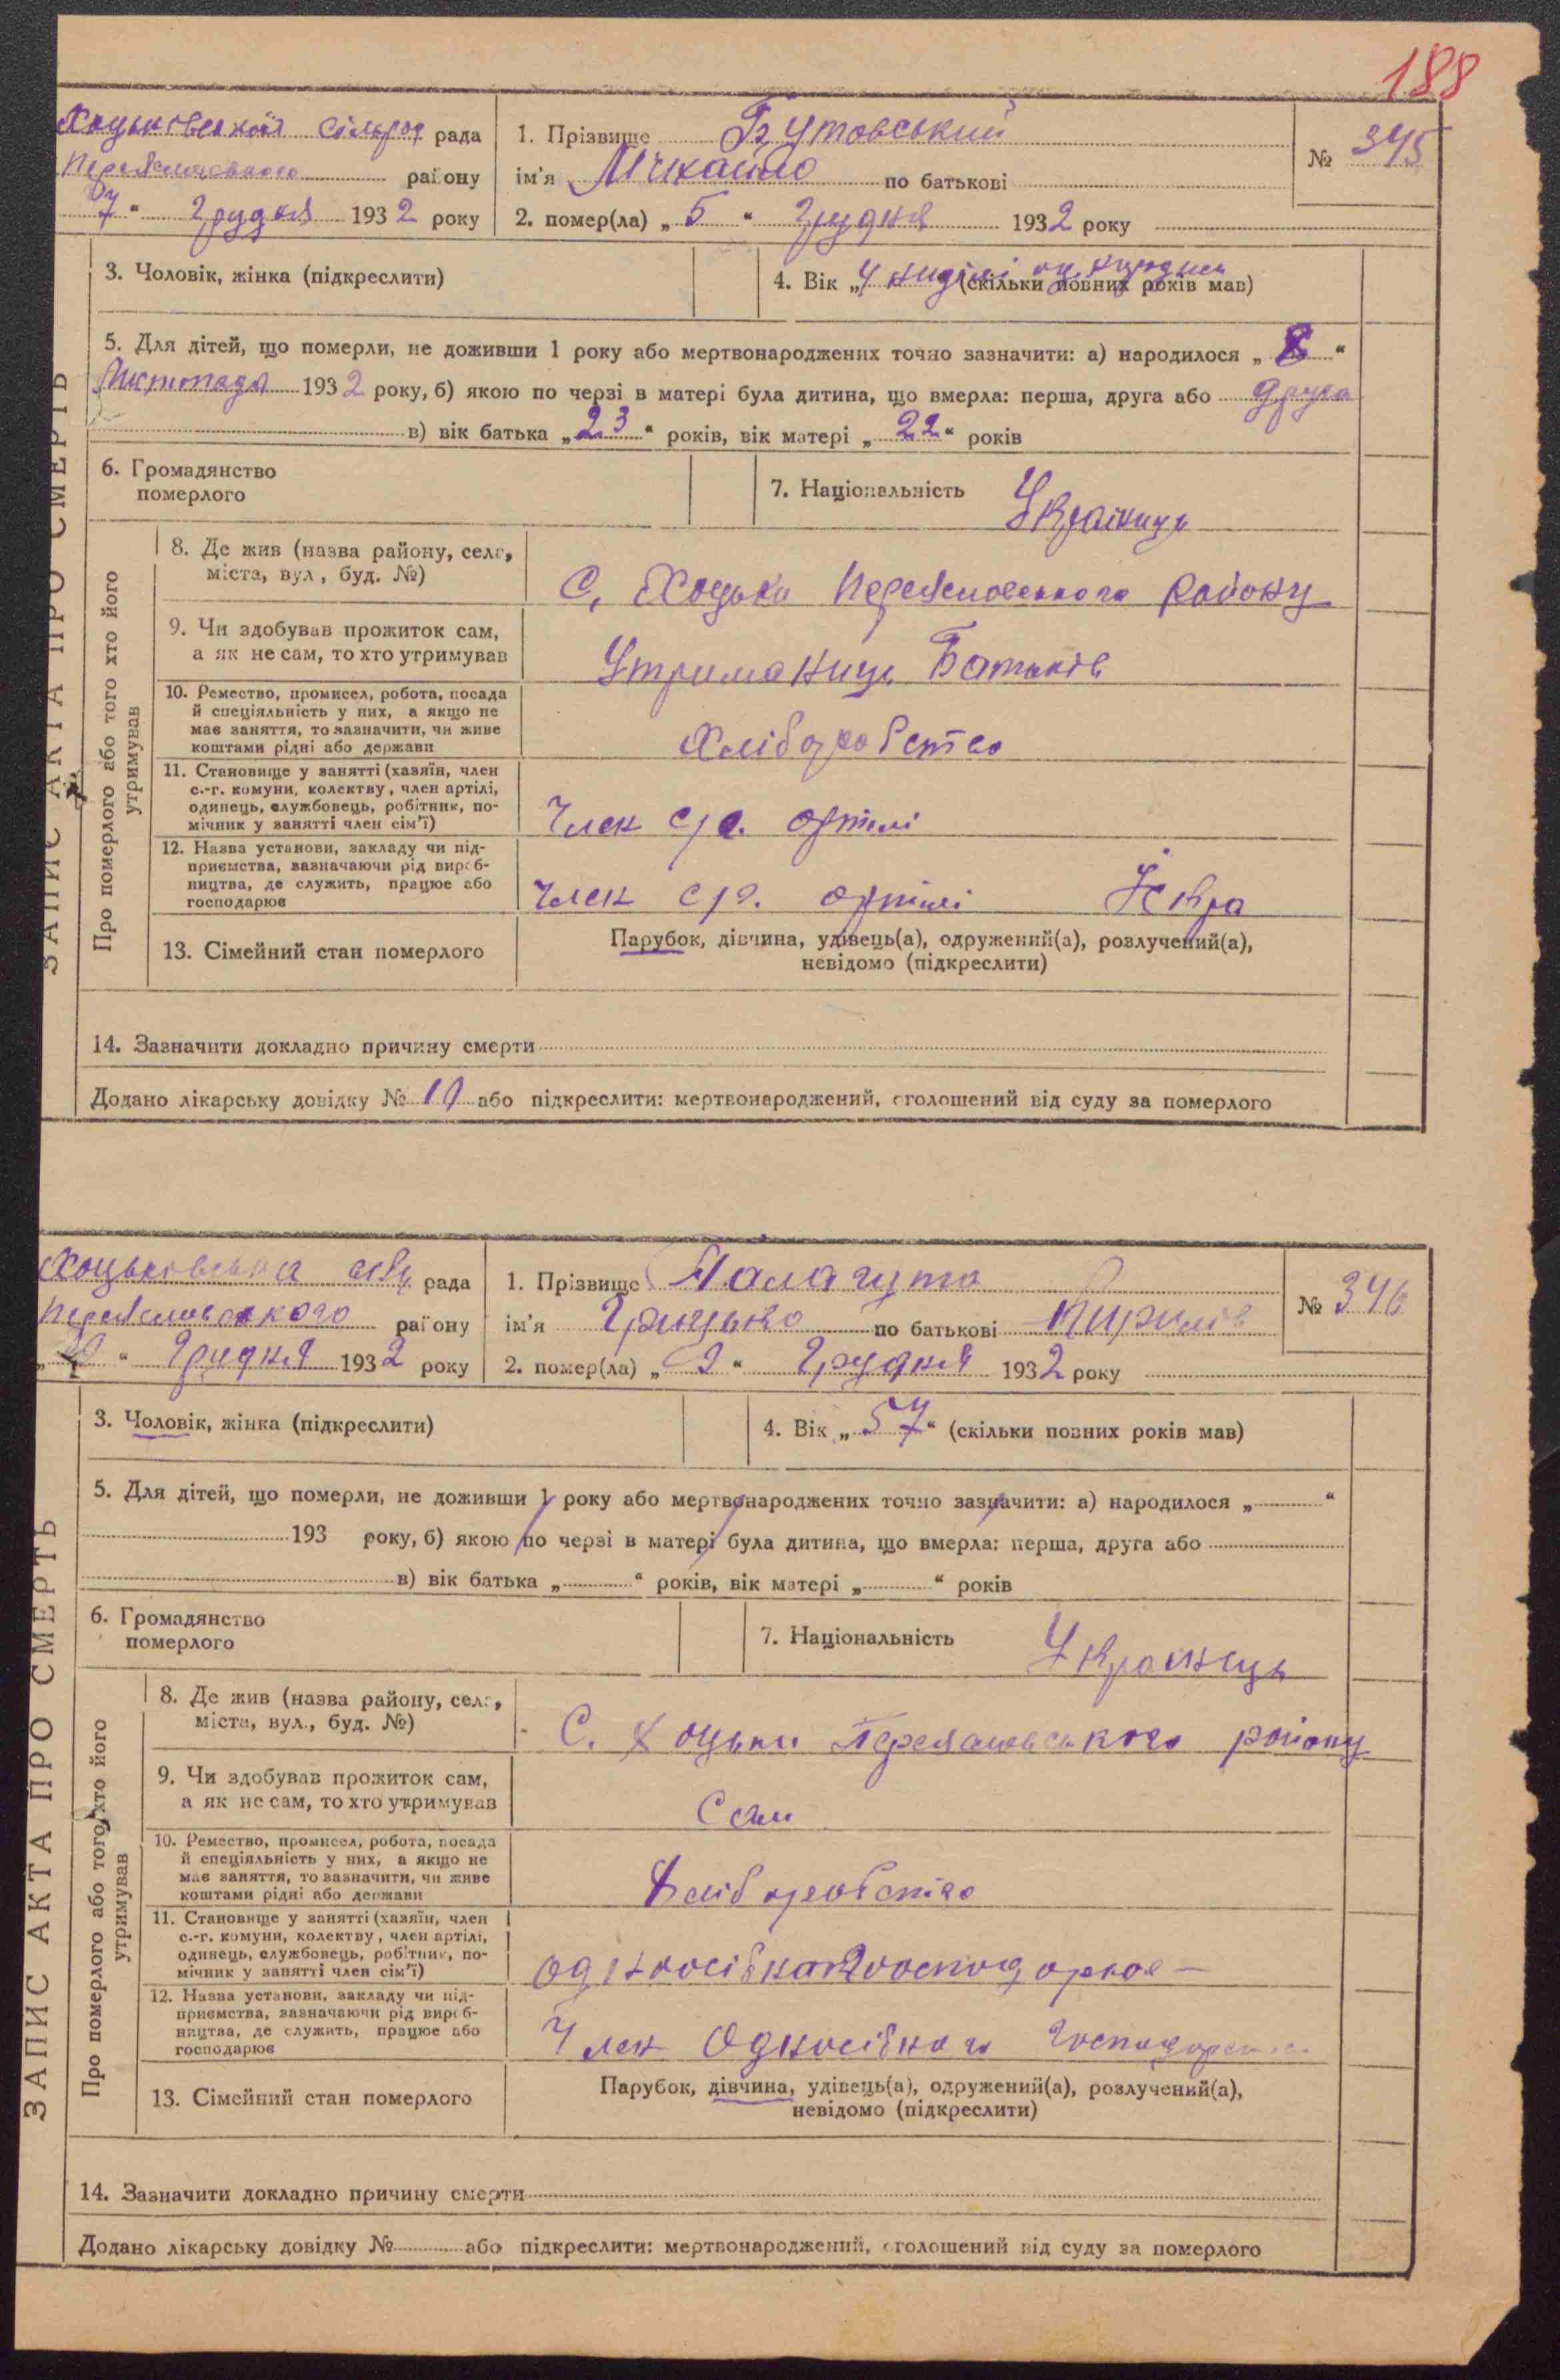 188
Хоцьківської сільрад рада
Переяславского району
7 " грудня 1932 року
1. Прізвище Бутовський
ім'я Михайло по батькові
2. помер(ла) „ 5 " грудня 1932 року
№ 345
3. Чоловік, жінка (підкреслити)
4. Вік „ 4 неділі (скільки повних років мав)
5. Для дітей, що померли, не доживши 1 року або мертвонароджених точно зазначити: а) народилося „ "
Листопада 1932 року, б) якою по черзі в матері була дитина, що вмерла: перша, друга або друга
в) вік батька „ 23 " років, вік матері „ 22 " років
6. Громадянство
померлого
7. Національність Українець
ЗАПИС АКТА ПРО СМЕРТЬ
Про померлого або того хто його
утримував
8. Де жив (назва району, села,
міста, вул., буд. №)
С. Хоцьки Переяславського району
9. Чи здобував прожиток сам,
а як не сам, то хто утримував
Утриманець Батьків
10. Ремество, промисел, робота, посада
й спеціяльність у них, а якщо не
має заняття, то зазначити, чи живе
коштами рідні або держави
Хліборобство
11. Становище у занятті (хазяїн, член
с.-г. комуни, колективу, член артілі,
одинець, службовець, робітник, по-
мічник у занятті член сім'ї)
Член с/г. артілі
12. Назва установи, закладу чи під-
приємства, зазначаючи рід вироб-
ництва, де служить, працює або
господарює
Член с/г. артілі Іскра
13. Сімейний стан померлого
Парубок, дівчина, удівець(а), одружений(а), розлучений(а),
невідомо (підкреслити)
14. Зазначити докладно причину смерти
Додано лікарську довідку № 19 або підкреслити: мертвонароджений, оголошений від суду за померлого
Хоцьківська рада
Переяславського району
" Грудня 1932 року
1. Прізвище Палагута
ім'я Грицько по батькові Кирилів
2. помер(ла) „ 9 " Грудня 1932 року
№ 346
3. Чоловік, жінка (підкреслити)
4. Вік „ 57 " (скільки повних років мав)
5. Для дітей, що померли, не доживши 1 року або мертвонароджених точно зазначити: а) народилося „ "
193 року, б) якою по черзі в матері була дитина, що вмерла: перша, друга або
в) вік батька „ " років, вік матері „ " років
6. Громадянство
померлого
7. Національність Українець
ЗАПИС АКТА ПРО СМЕРТЬ
Про померлого або того хто його
утримував
8. Де жив (назва району, села,
міста, вул., буд. №)
С. Хоцьки Переяславського району
9. Чи здобував прожиток сам,
а як не сам, то хто утримував
Сам
10. Ремество, промисел, робота, посада
й спеціяльність у них, а якщо не
має заняття, то зазначити, чи живе
коштами рідні або держави
Хліборобство
11. Становище у занятті (хазяїн, член
с.-г. комуни, колективу, член артілі,
одинець, службовець, робітник, по-
мічник у занятті член сім'ї)
12. Назва установи, закладу чи під-
приємства, зазначаючи рід вироб-
ництва, де служить, працює або
господарює
Член Односібного
13. Сімейний стан померлого
Парубок, дівчина, удівець(а), одружений(а), розлучений(а),
невідомо (підкреслити)
14. Зазначити докладно причину смерти
Додано лікарську довідку № або підкреслити: мертвонароджений, оголошений від суду за померлого